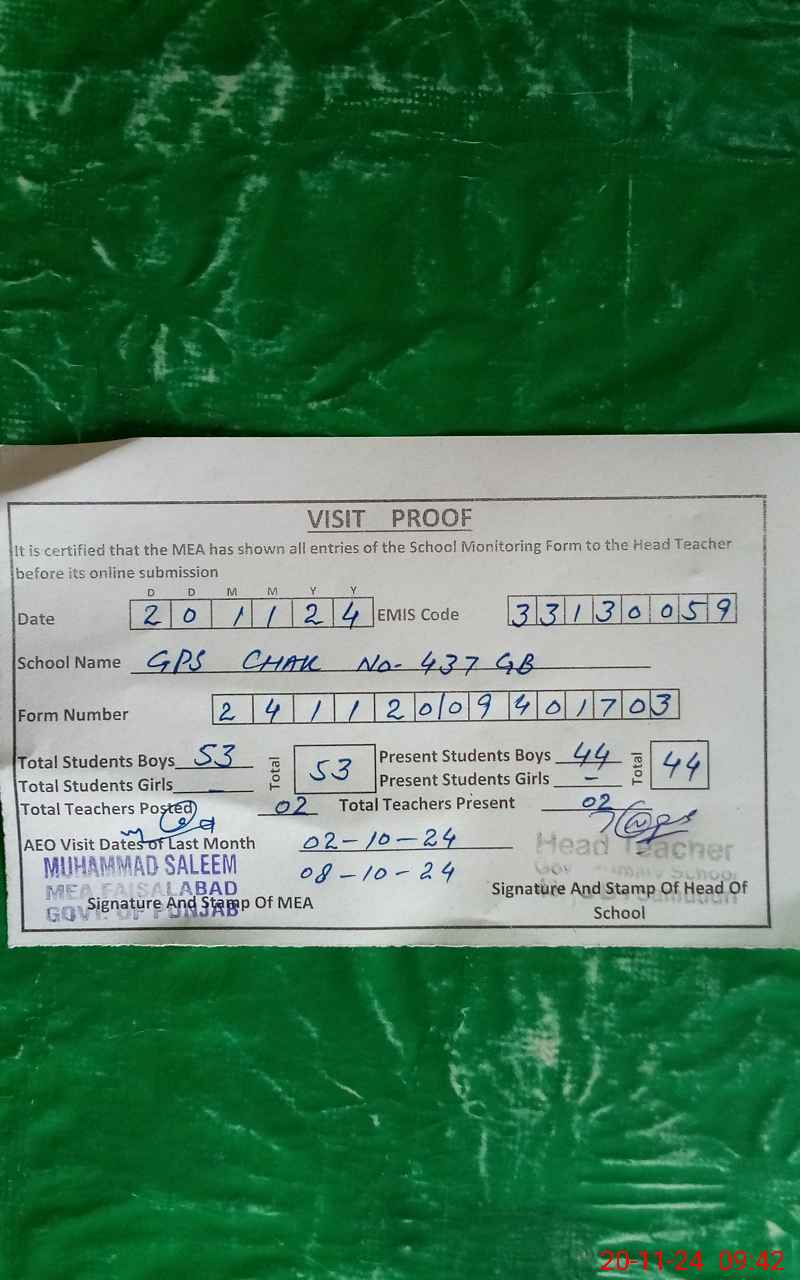 VISIT PROOF
It is certified that the MEA has shown all entries of the School Monitoring Form to the Head Teacher
before its online submission
D D M M Y Y
Date 2 0 1 1 2 4 EMIS Code 3 3 1 3 0 0 5 9
School Name GPS CHAK No- 437 GB
Form Number 2 4 1 1 2 0 0 9 4 0 1 7 0 3
Total Students Boys 53 Total 53 Present Students Boys 44 Total 44
Total Students Girls - Present Students Girls -
Total Teachers Posted 02 Total Teachers Present 02
AEO Visit Dates of Last Month 02-10-24
08-10-24
MUHAMMAD SALEEM
MEA FAISALABAD
GOVT. OF PUNJAB
Signature And Stamp Of MEA
Head Teacher
School
Signature And Stamp Of Head Of
School
20-11-24 09:42